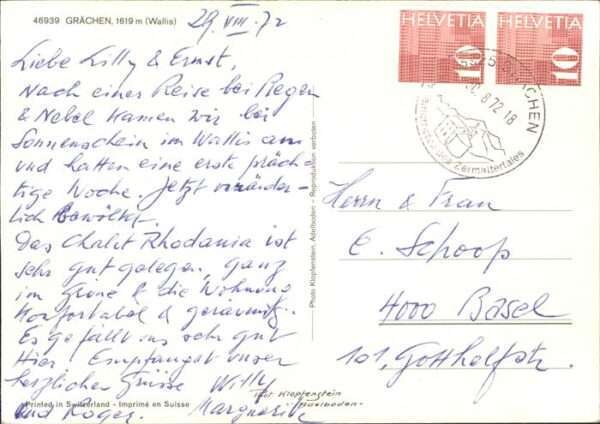 46939 GRÄCHEN, 1619 m (Wallis)
29. VIII. 72
Liebe Lilly & Ernst,
Nach einer Reise bei Regen
& Nebel kamen wir bei
Sonnenschein im Wallis an
und hatten eine erste präch-
tige Woche. Jetzt veränder-
lich bewölkt.
Das Chalet Rhodania ist
sehr gut gelegen, ganz
im Grüne & die Wohnung
komfortabel & geräumig.
Es gefällt uns sehr gut
hier. Empfanget unser
herzlichen Grüsse Willy
und Roger. Marguerite
Printed in Switzerland - Imprimé en Suisse
Photo Klopfenstein, Adelboden - Reproduction verboten
HELVETIA
10
HELVETIA
10
GRÄCHEN
8.72 18
Zermattertales
Herrn & Frau
E. Schoop
4000 Basel
101, Gotthelfstr.
Klopfenstein